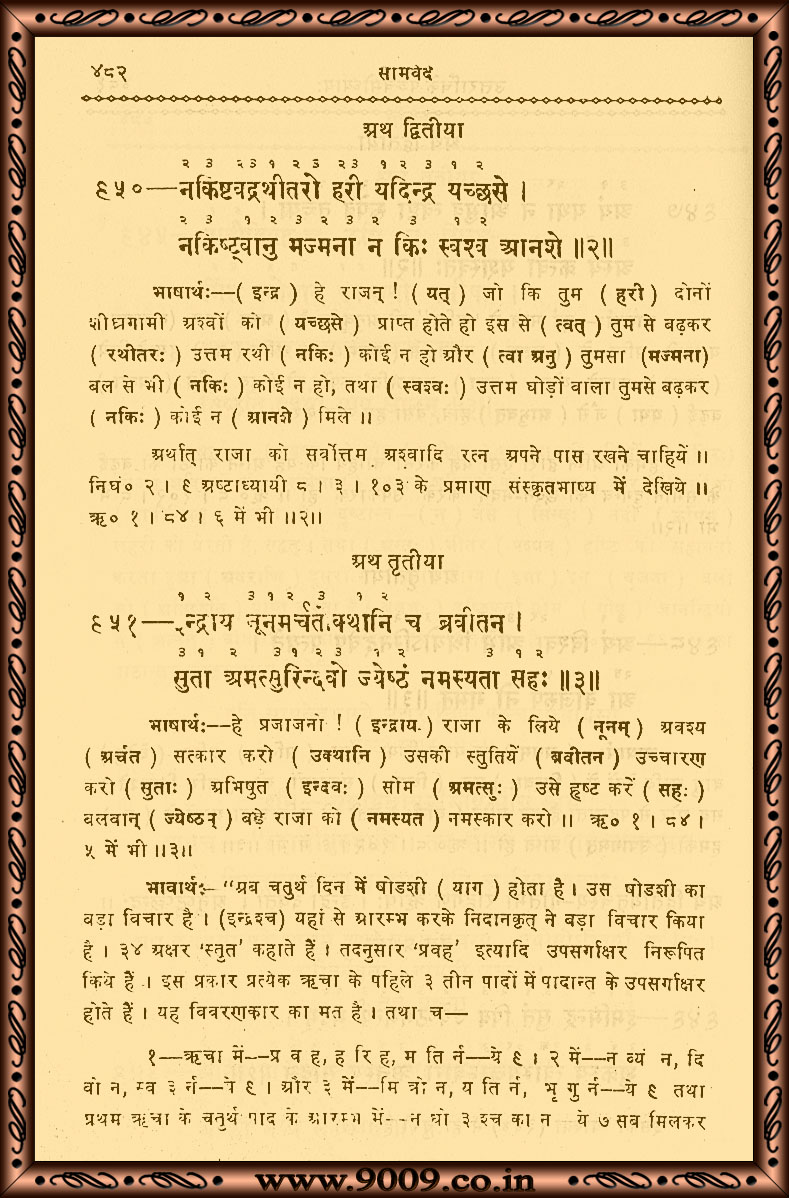 ४८२ सामवेद
अथ द्वितीया
२ ३ २३ १ २ ३ २३ १ २ ३ १ २
९५०—नकिष्ट्वद्रथीतरो हरी यदिन्द्र यच्छसे ।
२ ३ १ २ ३ २ ३ २ ३ १ २
नकिष्ट्वानु मज्मना न किः स्वश्व आनशे ॥२॥
भाषार्थः—( इन्द्र ) हे राजन् ! ( यत् ) जो कि तुम ( हरी ) दोनों
शीघ्रगामी अश्वों को ( यच्छसे ) प्राप्त होते हो इस से ( त्वत् ) तुम से बढ़कर
( रथीतरः ) उत्तम रथी ( नकिः ) कोई न हो और ( त्वा अनु ) तुमसा (मज्मना)
बल से भी ( नकिः ) कोई न हो, तथा ( स्वश्वः ) उत्तम घोड़ों वाला तुमसे बढ़कर
( नकिः ) कोई न ( आनशे ) मिले ॥
अर्थात् राजा को सर्वोत्तम अश्वादि रत्न अपने पास रखने चाहियें ॥
निघं० २ । ९ अष्टाध्यायी ८ । ३ । १०३ के प्रमाण संस्कृतभाष्य में देखिये ॥
ऋ० १ । ८४ । ६ में भी ॥२॥
अथ तृतीया
१ २ ३ १ २ ३ १ २
९५१—इन्द्राय नूनमर्चतोक्थानि च ब्रवीतन ।
३ १ २ ३ १ २ ३ १ २ ३ १ २
सुता अमत्सुरिन्दवो ज्येष्ठं नमस्यता सहः ॥३॥
भाषार्थः—हे प्रजाजनो ! ( इन्द्राय ) राजा के लिये ( नूनम् ) अवश्य
( अर्चत ) सत्कार करो ( उक्थानि ) उसकी स्तुतियें ( ब्रवीतन ) उच्चारण
करो ( सुताः ) अभिषुत ( इन्दवः ) सोम ( अमत्सुः ) उसे हृष्ट करें ( सहः )
बलवान् ( ज्येष्ठम् ) बड़े राजा को ( नमस्यत ) नमस्कार करो ॥ ऋ० १ । ८४ ।
५ में भी ॥३॥
भावार्थः— “अब चतुर्थ दिन में षोडशी ( याग ) होता है । उस षोडशी का
बड़ा विचार है । (इन्द्रश्च) यहां से आरम्भ करके निदानकृत् ने बड़ा विचार किया
है । ३४ अक्षर ‘स्तुत’ कहाते हैं । तदनुसार ‘प्रवह’ इत्यादि उपसर्गाक्षर निरूपित
किये हैं । इस प्रकार प्रत्येक ऋचा के पहिले ३ तीन पादों में पादान्त के उपसर्गाक्षर
होते हैं । यह विवरणकार का मत है । तथा च—
१—ऋचा में—प्र व ह, ह रि ह, म ति र्न—ये ९ । २ में—न व्यं न, दि
वो न, स्व ३ र्न—ये ९ । और ३ में—मि त्रो न, य ति र्न, भृ गु र्न—ये ९ तथा
प्रथम ऋचा के चतुर्थ पाद के आरम्भ में—न घो ३ श्च का न ये ७ सब मिलकर
www.9009.co.in